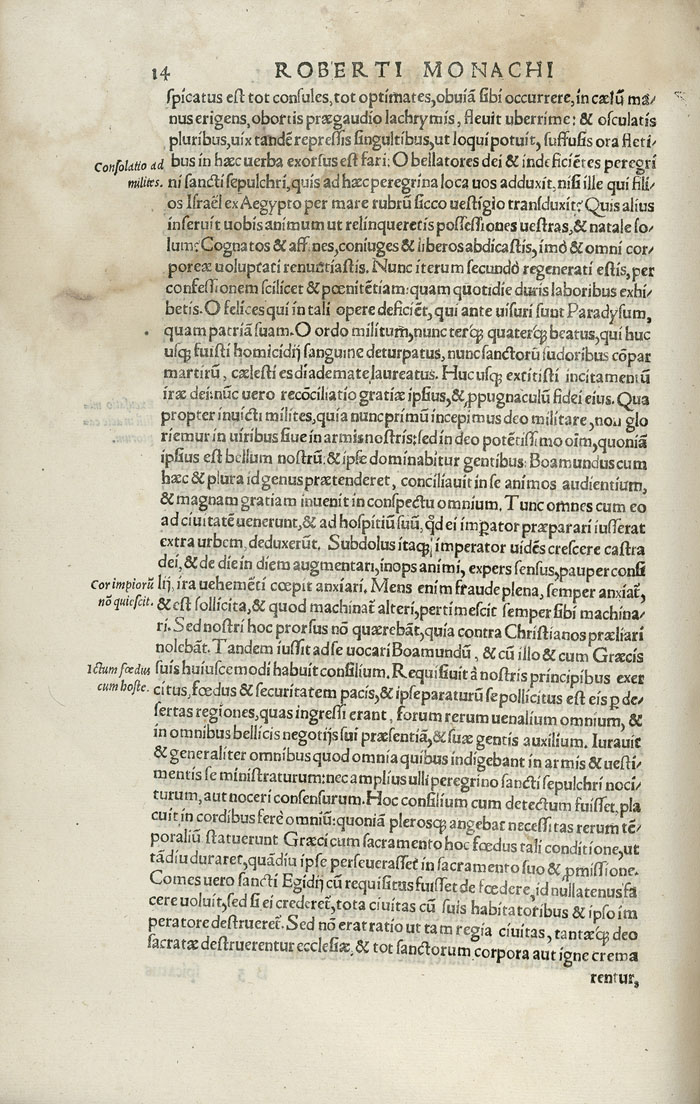 14 ROBERTI MONACHI
spicatus est tot consules, tot optimates, obuiã sibi occurrere, in cælũ ma-
nus erigens, obortis prægaudio lachrymis, fleuit uberrime: & osculatis
pluribus, uix tandẽ repressis singultibus, ut loqui potuit, suffusis ora fleti-
Consolatio ad milites.
bus in hæc uerba exorsus est fari: O bellatores dei & indeficiẽtes peregri
ni sancti sepulchri, quis ad hæc peregrina loca uos adduxit, nisi ille qui fili-
os Israël ex Aegypto per mare rubrũ sicco uestigio transduxit? Quis alius
inseruit uobis animum ut relinqueretis possessiones uestras, & natale so-
lum? Cognatos & affines, coniuges & liberos abdicastis, imò & omni cor-
poreæ uoluptati renuntiastis. Nunc iterum secundò regenerati estis, per
confessionem scilicet & pœnitẽtiam: quam quotidie duris laboribus exhi-
betis. O felices qui in tali opere deficiẽt, qui ante uisuri sunt Paradysum,
quam patriã suam. O ordo militum, nunc terq́; quaterq́; beatus, qui huc
usq́; fuisti homicidij sanguine deturpatus, nunc sanctorũ sudoribus cõpar
martirũ, cælesti es diademate laureatus. Huc usq́; extitisti incitamentũ
iræ dei: nũc uero recõciliatio gratiæ ipsius, & ꝓpugnaculũ fidei eius. Qua
propter inuicti milites, quia nunc primũ incepimus deo militare, non glo
riemur in uiribus siue in armis nostris: sed in deo potẽtissimo oĩm, quoniã
ipsius est bellum nostrũ: & ipse dominabitur gentibus: Boamundus cum
hæc & plura id genus prætenderet, conciliauit in se animos audientium,
& magnam gratiam inuenit in conspectu omnium. Tunc omnes cum eo
ad ciuitatẽ uenerunt, & ad hospitiũ suũ, qd̃ ei imꝑator præparari iusserat
extra urbem, deduxerũt. Subdolus itaq́; imperator uidẽs crescere castra
dei, & de die in diem augmentari, inops animi, expers sensus, pauper consi
Cor impiorũ nõ quiescit.
lij, ira uehemẽti cœpit anxiari. Mens enim fraude plena, semper anxiat̃,
& est sollicita, & quod machinat̃ alteri, pertimescit semper sibi machina-
ri. Sed nostri hoc prorsus nõ quærebãt, quia contra Christianos præliari
nolebãt. Tandem iussit ad se uocari Boamundũ, & cũ illo & cum Græcis
Ictum fœdus cum hoste.
suis huiuscemodi habuit consilium. Requisiuit à nostris principibus exer
citus, fœdus & securitatem pacis, & ipse paraturũ se pollicitus est eis ꝑ de-
sertas regiones, quas ingressi erant, forum rerum uenalium omnium, &
in omnibus bellicis negotijs sui præsentiã, & suæ gentis auxilium. Iurauit
& generaliter omnibus quod omnia quibus indigebant in armis & uesti-
mentis se ministraturum: nec amplius ulli peregrino sancti sepulchri noci-
turum, aut noceri consensurum. Hoc consilium cum detectum fuisset, pla
cuit in cordibus ferè omniũ: quoniã plerosq́; angebat necessitas rerum tẽ-
poraliũ statuerunt Græci cum sacramento hoc fœdus tali conditione, ut
tãdiu duraret, quãdiu ipse perseuerasset in sacramento suo & ꝓmissione.
Comes uero sancti Egidij cũ requisitus fuisset de fœdere, id nullatenus fa
cere uoluit, sed si ei crederet̃, tota ciuitas cũ suis habitatoribus & ipso im
peratore destrueret̃. Sed nõ erat ratio ut tam regia ciuitas, tantæq́; deo
sacratæ destruerentur ecclesiæ, & tot sanctorum corpora aut igne crema
rentur,